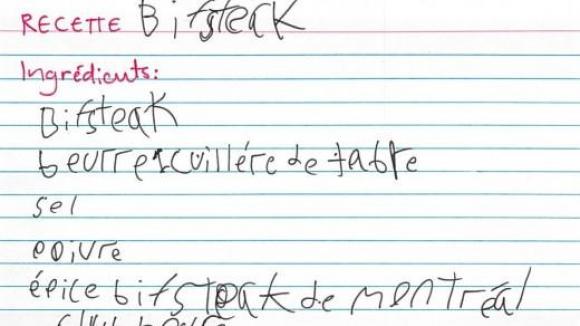 RECETTE Bifsteak
Ingrédients:
Bifsteak
beurre 1 cuillére de table
sel
poivre
épice bifsteak de montréal